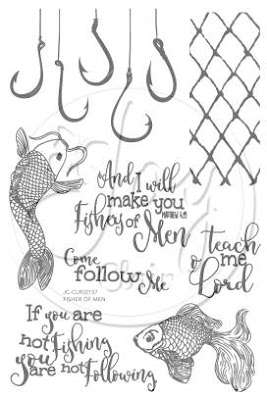 And I will
make you
MATTHEW 4:19
Fishers of
Men
Come
follow
Me
teach
o me
Lord
JC-CLR02137
FISHER OF MEN
If you are
not Fishing
you are not Following